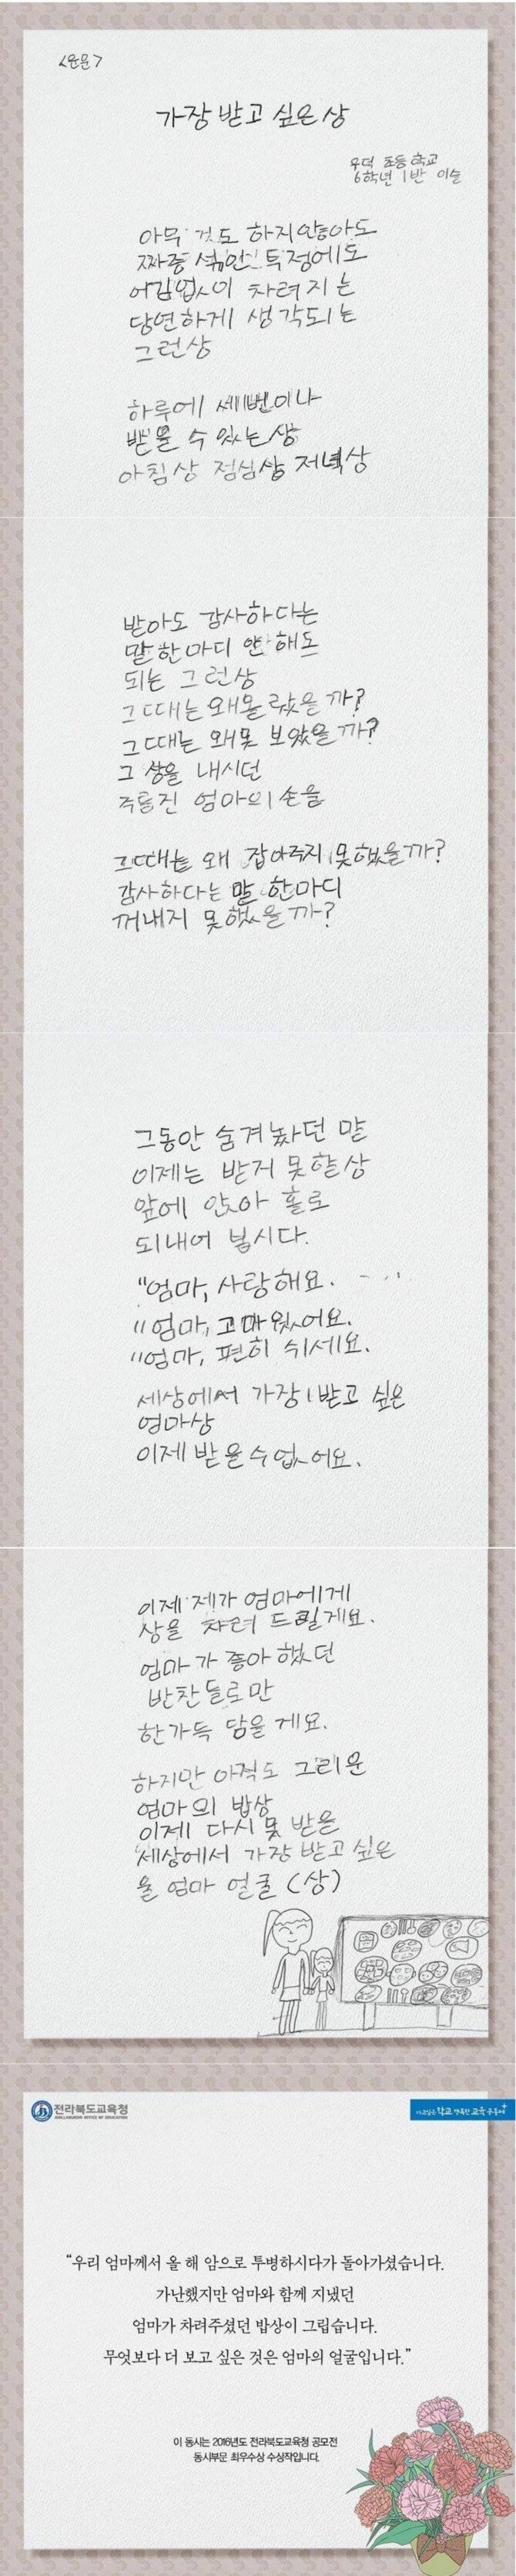 <운문>
가장 받고 싶은 상
우덕 초등학교
6학년 1반 이슬
아무 것도 하지않아도
짜증 섞인 투정에도
어김없이 차려지는
당연하게 생각되는
그런상
하루에 세번이나
받을 수 있는 상
아침상 점심상 저녁상
받아도 감사하다는
말 한마디 안 해도
되는 그런상
그때는 왜몰랐을까?
그때는 왜못 보았을까?
그 상을 내시던
주름진 엄마의 손을
그때는 왜 잡아주지 못했을까?
감사하다는 말 한마디
꺼내지 못했을까?
그동안 숨겨놨던 말
이제는 받지 못할상
앞에 앉아 홀로
되내어 봅시다.
"엄마, 사랑해요.
"엄마, 고마웠어요.
"엄마, 편히 쉬세요.
세상에서 가장 받고 싶은
엄마상
이제 받을수없어요.
이제 제가 엄마에게
상을 차려 드릴게요.
엄마가 좋아했던
반찬들로만
한가득 담을게요.
하지만 아직도 그리운
엄마의 밥상
이제 다시 못 받을
세상에서 가장 받고 싶은
울 엄마 얼굴 (상)
전라북도교육청
JEOLLABUKDO OFFICE OF EDUCATION
가고싶은 학교 행복한 교육공동체
“우리 엄마께서 올 해 암으로 투병하시다가 돌아가셨습니다.
가난했지만 엄마와 함께 지냈던
엄마가 차려주셨던 밥상이 그립습니다.
무엇보다 더 보고 싶은 것은 엄마의 얼굴입니다.”
이 동시는 2016년도 전라북도교육청 공모전
동시부문 최우수상 수상작입니다.